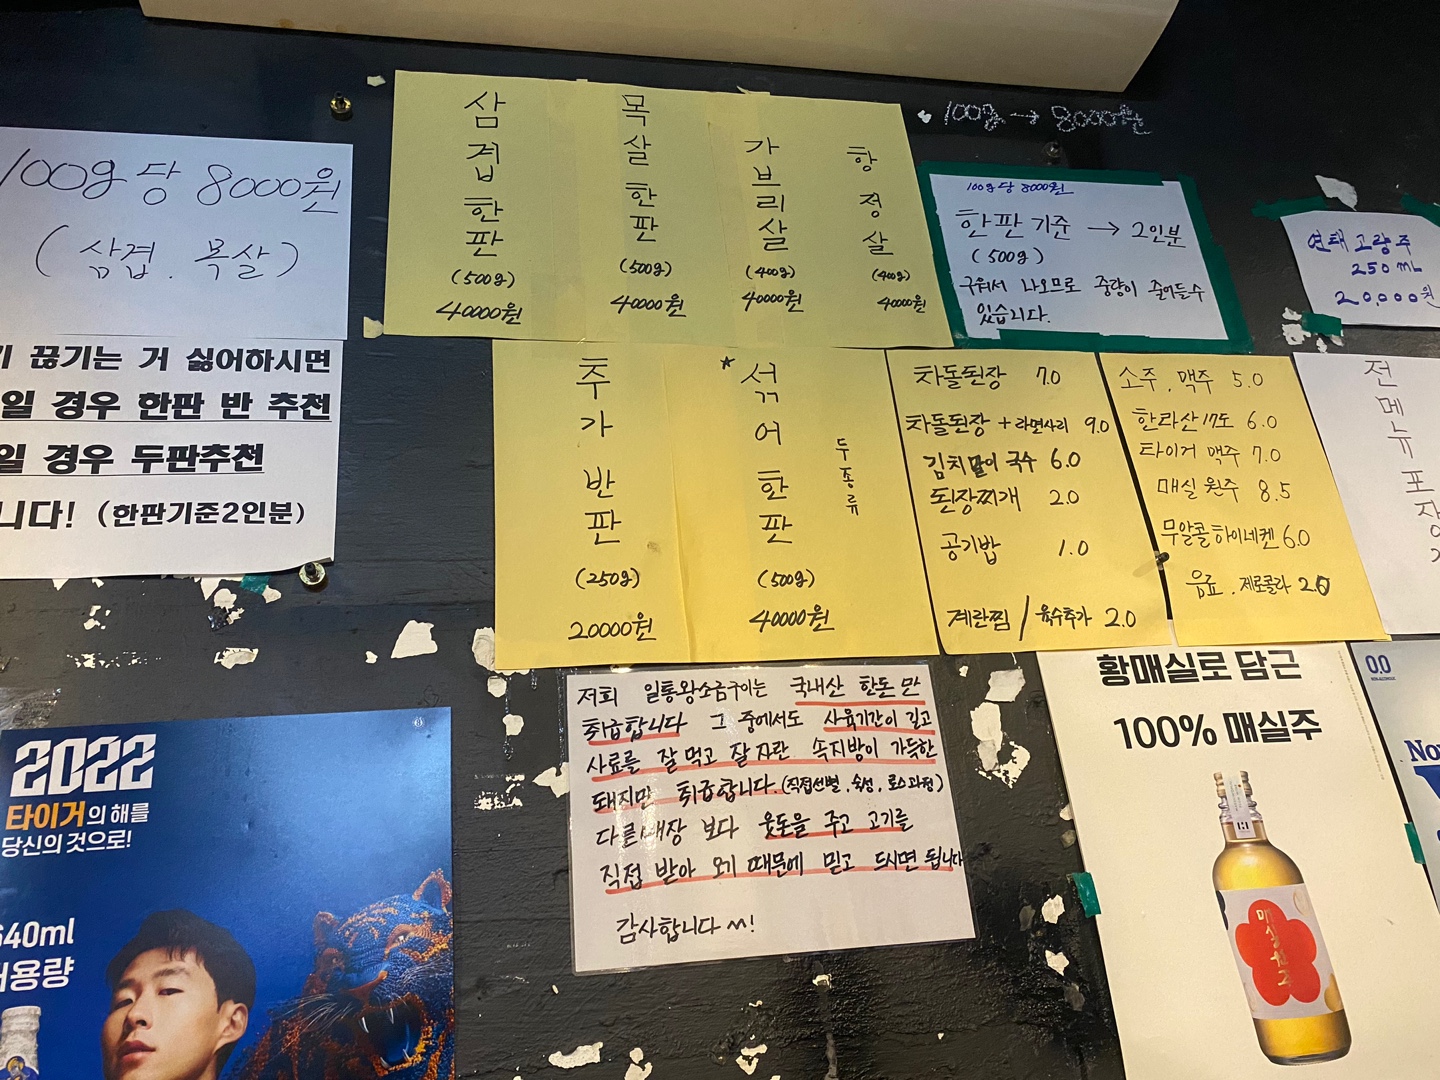 100g당 8000원
(삼겹. 목살)
끊기는 거 싫어하시면
일 경우 한판 반 추천
일 경우 두판추천
니다! (한판기준2인분)
삼겹한판
(500g)
40000원
목살한판
(500g)
40000원
가브리살
(400g)
40000원
항정살
(400g)
40000원
100g → 8000원
100g당 8000원
한판기준 → 2인분
(500g)
구워서 나오므로 중량이 줄어들수
있습니다.
연태고량주
250mL
20,000원
추가반판
(250g)
20000원
*섞어한판
두종류
(500g)
40000원
차돌된장 7.0
차돌된장+라면사리 9.0
김치말이 국수 6.0
된장찌개 2.0
공기밥 1.0
계란찜/육수추가 2.0
소주. 맥주 5.0
한라산 17도 6.0
타이거 맥주 7.0
매실원주 8.5
무알콜하이네켄 6.0
음료. 제로콜라 2.0
전메뉴포장
저희 일통왕소금구이는 국내산 한돈만
취급합니다 그 중에서도 사육기간이 길고
사료를 잘먹고 잘자란 속지방이 가득한
돼지만 취급합니다.(직접선별, 숙성, 로스과정)
다른매장 보다 웃돈을 주고 고기를
직접 받아 오기 때문에 믿고 드시면 됩니다
감사합니다^^!
2022
타이거의 해를
당신의 것으로!
640ml
대용량
황매실로 담근
100% 매실주
매실원주
0.0